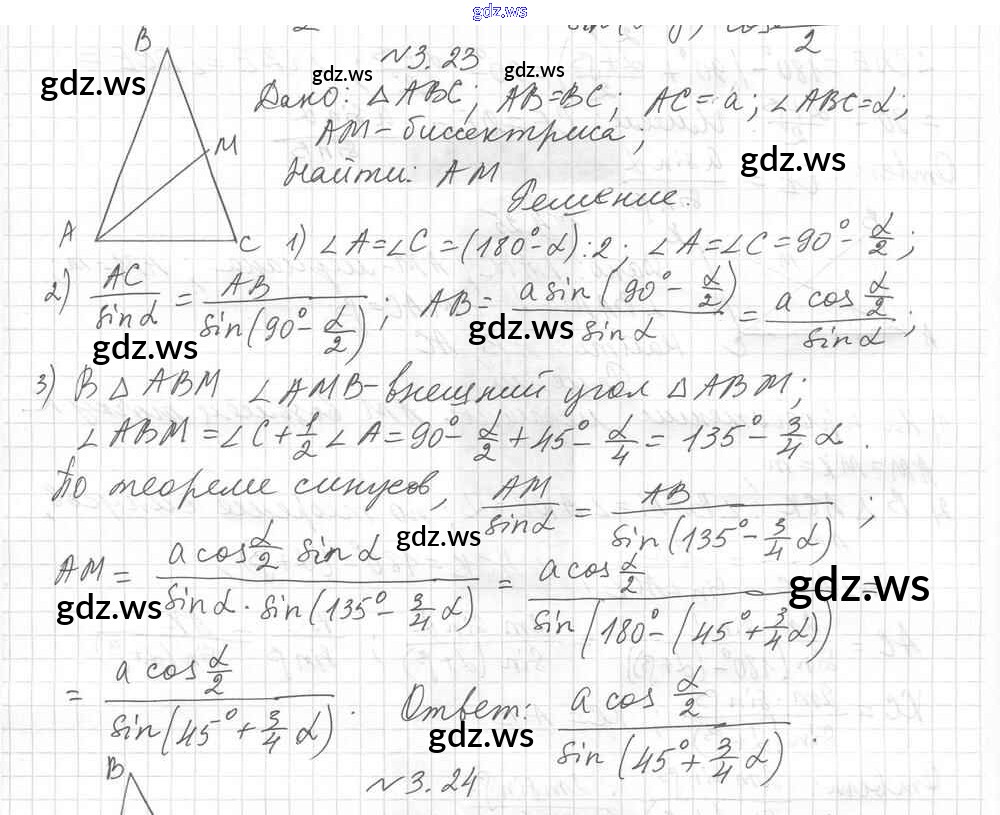 gdz.ws
N 3.23
gdz.ws gdz.ws
B
gdz.ws
Дано: △ABC; AB=BC; AC=a; ∠ABC=α;
AM-биссектриса;
M
gdz.ws
Найти: AM
Решение.
A C
1) ∠A=∠C=(180°-α):2; ∠A=∠C=90°-α/2;
2) AC/sinα = AB/sin(90°-α/2); AB= a sin(90°-α/2)/sinα = a cos α/2 / sinα;
gdz.ws gdz.ws
3) В △ABM ∠AMB-внешний угол △ABM;
∠ABM=∠C+1/2∠A=90°-α/2+45°-α/4=135°-3/4α.
По теореме синусов, AM/sinα = AB/sin(135°-3/4α);
gdz.ws
AM = a cos α/2 sinα / sinα·sin(135°-3/4α) = a cos α/2 / sin(180°-(45°+3/4α)) =
gdz.ws gdz.ws
= a cos α/2 / sin(45°+3/4α). Ответ: a cos α/2 / sin(45°+3/4α).
gdz.ws
B
N 3.24